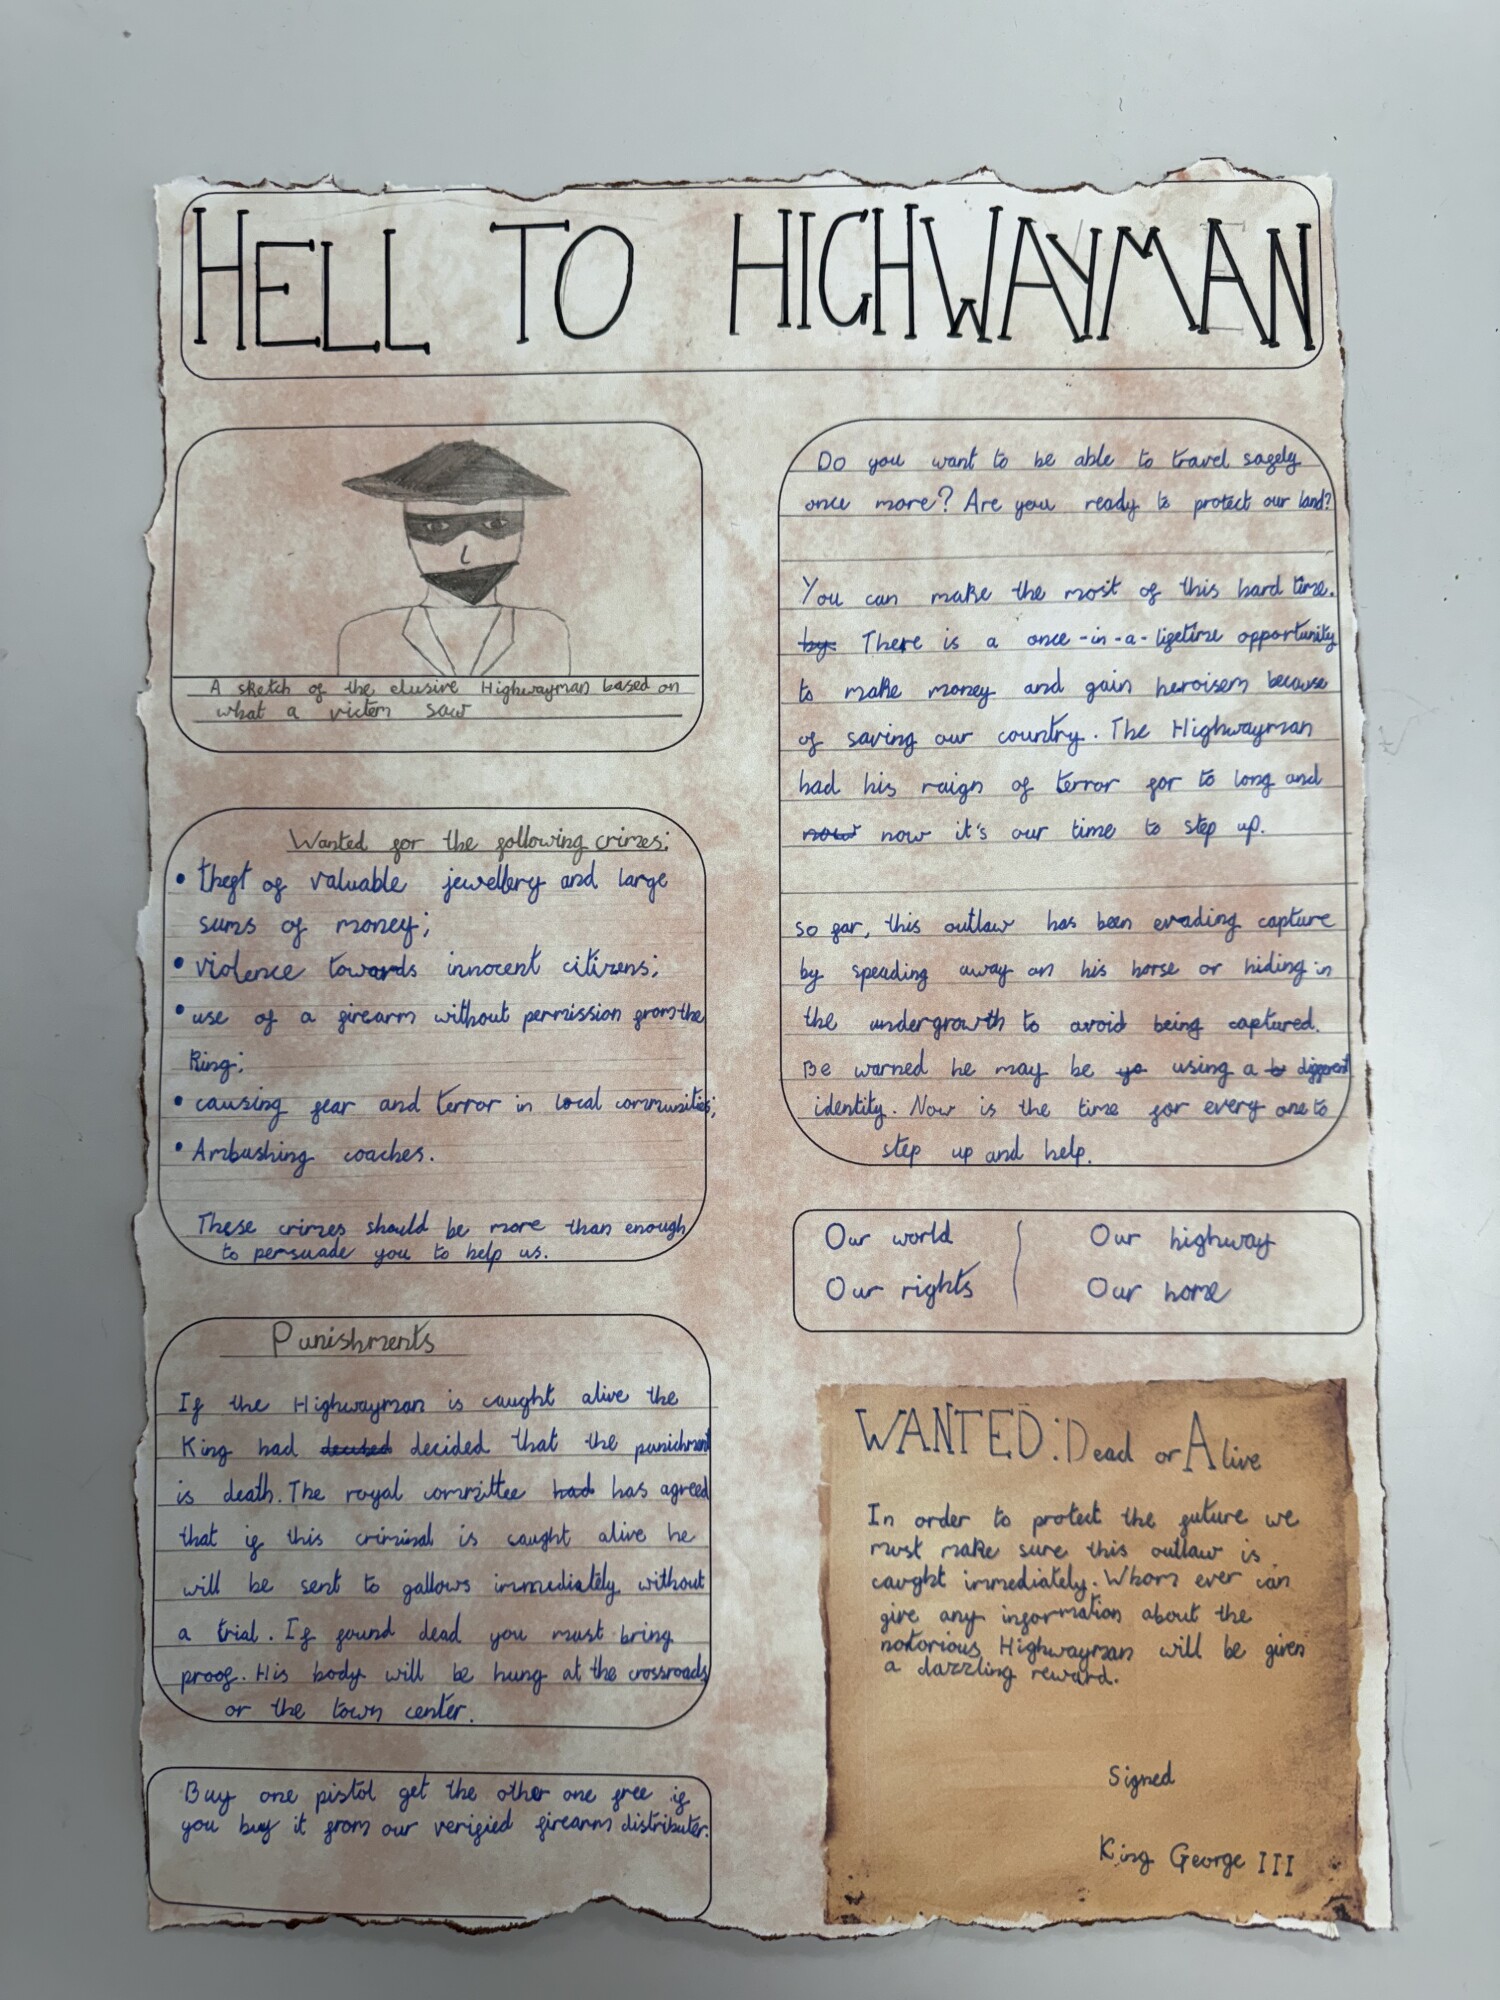 HELL TO HIGHWAYMAN
A sketch of the elusive Highwayman based on
what a victem saw
Wanted for the following crimes:
• theft of valuable jewellery and large
sums of money;
• violence towards innocent citizens;
• use of a firearm without permission from the
King;
• causing fear and terror in local communities;
• Ambushing coaches.
These crimes should be more than enough
to persuade you to help us.
Punishments
If the Highwayman is caught alive the
King had decided decided that the punichment
is death. The royal committee had has agreed
that if this criminal is caught alive he
will be sent to gallows immediately without
a trial. If found dead you must bring
proof. His body will be hung at the crossroads
or the town center.
Buy one pistol get the other one free if
you buy it from our verified firearm distributer.
Do you want to be able to travel safely
once more? Are you ready to protect our land?
You can make the most of this hard time.
by. There is a once-in-a-lifetime opportunity
to make money and gain heroisem because
of saving our country. The Highwayman
had his raign of terror for to long and
now now it's our time to step up.
so far, this outlaw has been evading capture
by speading away on his horse or hiding in
the undergrowth to avoid being captured.
Be warned he may be using a different
identity. Now is the time for every one to
step up and help.
Our world
Our rights
Our highway
Our home
WANTED: Dead or Alive
In order to protect the future we
must make sure this outlaw is
caught immediately. Whom ever can
give any information about the
notorious Highwayman will be given
a dazzling reward.
Signed
King George III